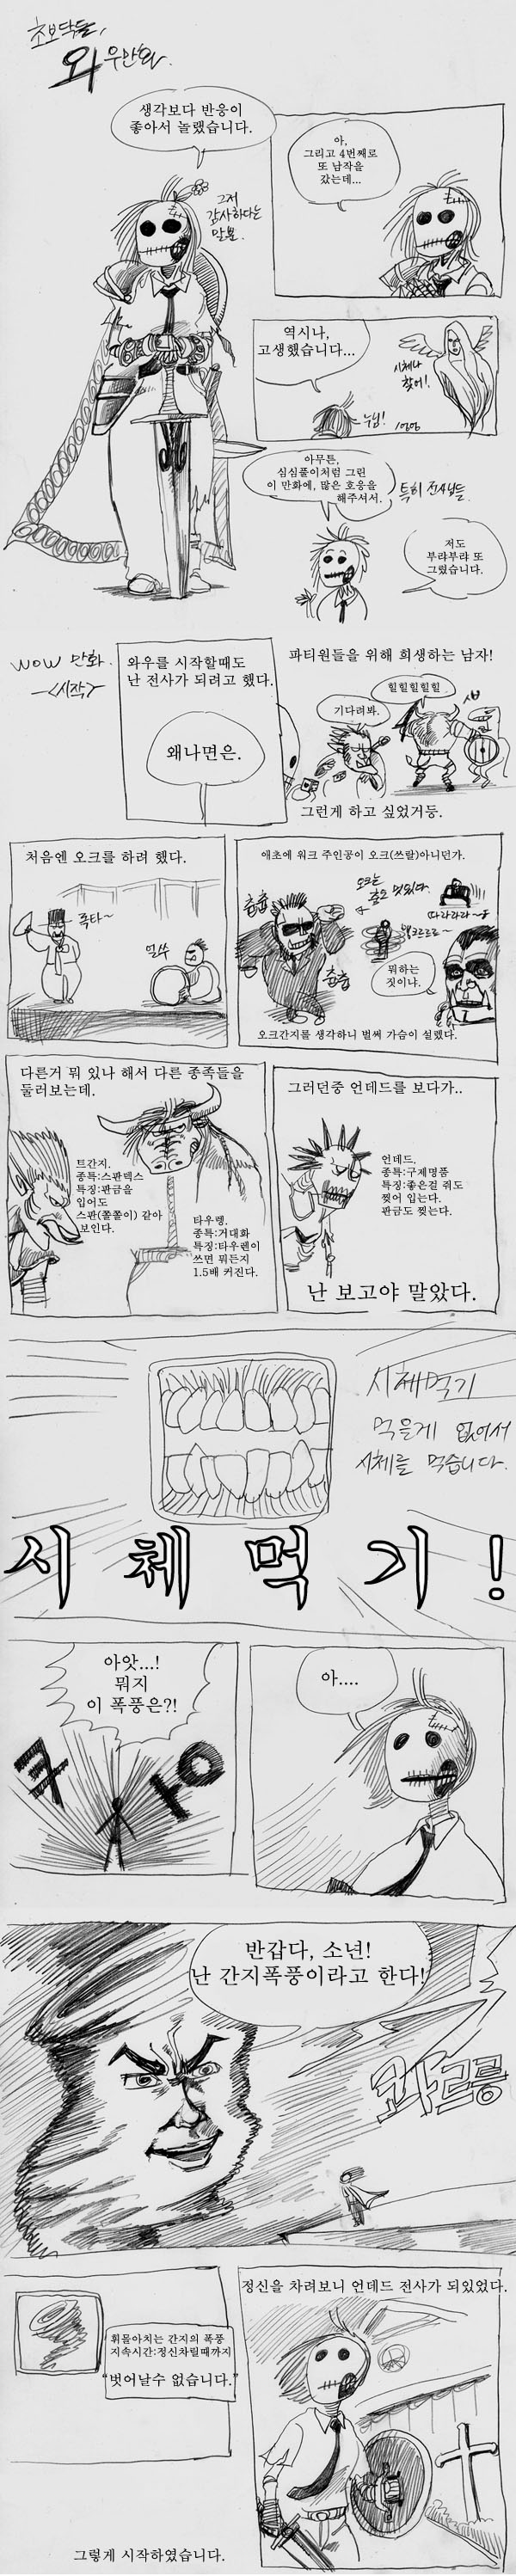 초보닥들,
와우만화.
생각보다 반응이
좋아서 놀랬습니다.
그저
감사하다는
말뿐.
아,
그리고 4번째로
또 납작을
갔는데...
역시나,
고생했습니다...
시체나
찾어!
누님!
아무튼,
심심풀이처럼 그린
이 만화에, 많은 호응을
해주셔서.
특히 전사분들.
저도
부랴부랴 또
그렸습니다.
WOW 만화.
-<시작>
와우를 시작할때도
난 전사가 되려고 했다.
왜냐면은.
파티원들을 위해 희생하는 남자!
힐힐힐힐힐
기다려봐.
그런게 하고 싶었거등.
처음엔 오크를 하려 했다.
록타~
얼쑤
애초에 워크 주인공이 오크(쓰랄)아니던가.
오크는
춤도 멋있다.
춤춤
춤춤
따라라라~
뭐하는
짓이냐.
오크간지를 생각하니 벌써 가슴이 설렜다.
다른거 뭐 있나 해서 다른 종족들을
둘러보는데.
트간지.
종특:스판텍스
특징:판금을
입어도
스판(쫄쫄이) 같아
보인다.
타우렝.
종특:거대화
특징:타우렌이
쓰면 뭐든지
1.5배 커진다.
그러던중 언데드를 보다가..
언데드.
종특:구제명품
특징:좋은걸 줘도
찢어 입는다.
판금도 찢는다.
난 보고야 말았다.
시체먹기
먹을게 없어서
시체를 먹습니다.
시체먹기!
아앗...!
뭐지
이 폭풍은?!
쿠오
아....
반갑다, 소년!
난 간지폭풍이라고 한다!
콰르릉
휘몰아치는 간지의 폭풍
지속시간:정신차릴때까지
"벗어날수 없습니다."
정신을 차려보니 언데드 전사가 되있었다.
그렇게 시작하였습니다.